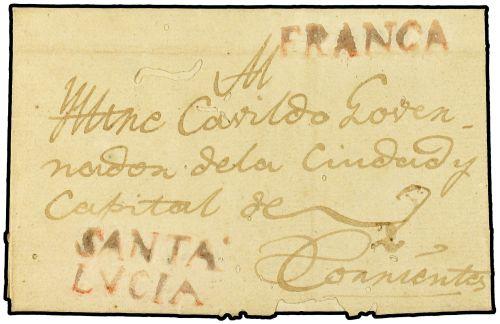 FRANCA
Al
Mtre Cavildo Goven-
nador de la Ciudad y
Capital de
SANTA
LVCIA
Corrientes